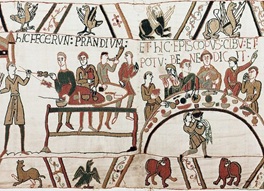 hIC FECERVN: PRANDIVM:
ET hIC EPISCOPVS CIBV ET
POTV: BE NE DICIT